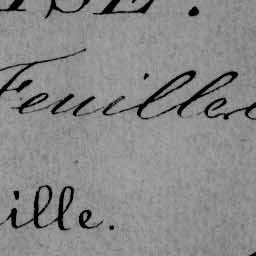 ISE.
Feuilles
ille.